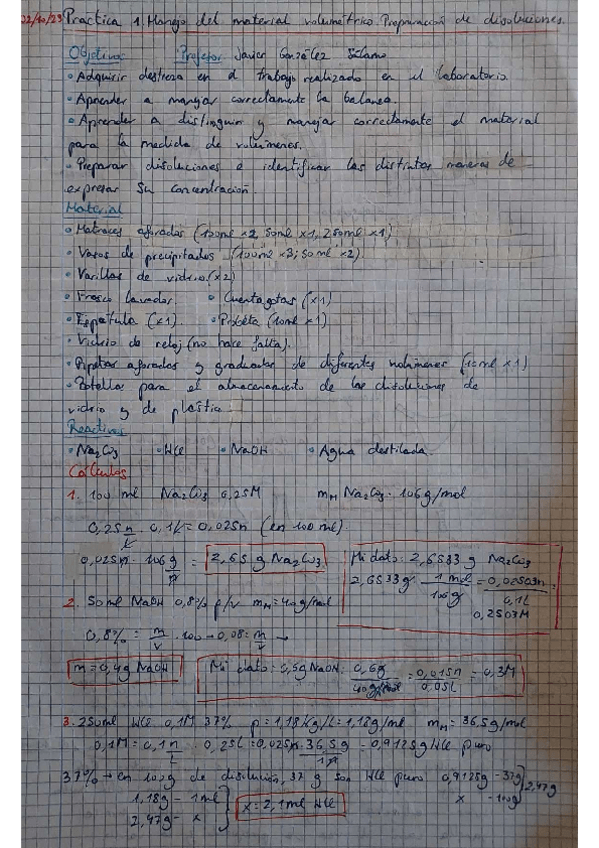 02/10/23 Practica 1. Manejo del material volumétrico. Preparación de disoluciones.
Objetivos Profesor Javier González
• Adquirir destreza en el trabajo realizado en el laboratorio.
• Aprender a manejar correctamente la balanza.
• Aprender a distinguir y manejar correctamente el material
para la medida de volúmenes.
• Preparar disoluciones e identificar las distintas maneras de
expresar su concentración.
Material
• Matraces aforados (100ml x2, 50ml x1, 250ml x1)
• Vasos de precipitados (100ml x3; 50ml x2)
• Varillas de vidrio (x2)
• Frasco lavador. • Cuentagotas (x1)
• Espátula (x1). • Probeta (10ml x1)
• Vidrio de reloj (no hace falta).
• Pipetas aforadas y graduadas de diferentes volúmenes (10ml x1)
• Botellas para el almacenamiento de las disoluciones de
vidrio y de plástico
Reactivos
• Na2CO3 • HCl • NaOH • Agua destilada.
Cálculos
1. 100 ml Na2CO3 0,25M mM Na2CO3 = 106g/mol
0,25 n/L · 0,1L = 0,025n (en 100ml).
0,025n · 106 g/n = 2,65 g Na2CO3
Mi dato: 2,6533 g Na2CO3
2,6533g · 1 mol/106g = 0,02503n/0,1L =
0,2503M
2. 50ml NaOH 0,8% p/v mM = 40g/mol
0,8% = m/v · 100 → 0,08 = m/v →
m = 0,4g NaOH
Mi dato: 0,5g NaOH · 0,6g/40g/mol = 0,015n/0,05L = 0,3M
3. 250ml HCl 0,1M 37% ρ = 1,18kg/L = 1,18g/ml mM = 36,5g/mol
0,1M = 0,1 n/L · 0,25L = 0,025n · 36,5g/1n = 0,9125g HCl puro
37% → en 100g de disolución, 37 g son HCl puro 0,9125g - 37g } 2,47g
x - 100g
1,18g - 1ml
2,47g - x
x = 2,1ml HCl